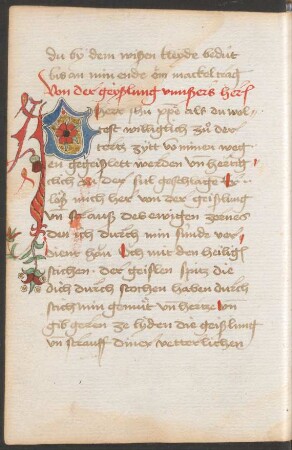 du by dem wissen kleyde bedüt
bis an min ende on mackel trag
Von der geyslung vnnsers herſ
herr jhu xpe als du wol
test williglich zů der
tertz zitt vō minen weg
en gegeislett werden vn hertig
clich an der sul geschlagē
löß mich her von der geislung
vn strauff des ewigen zornes
den ich durch min sünde ver
dient han Ich mit den heiligē
stichen der geislen spitz die
dich durch stochen haben durch
stich min gemüt vn hertze vn
gib geren ze lyden die geißlung
vn strauff diner vetterlichen